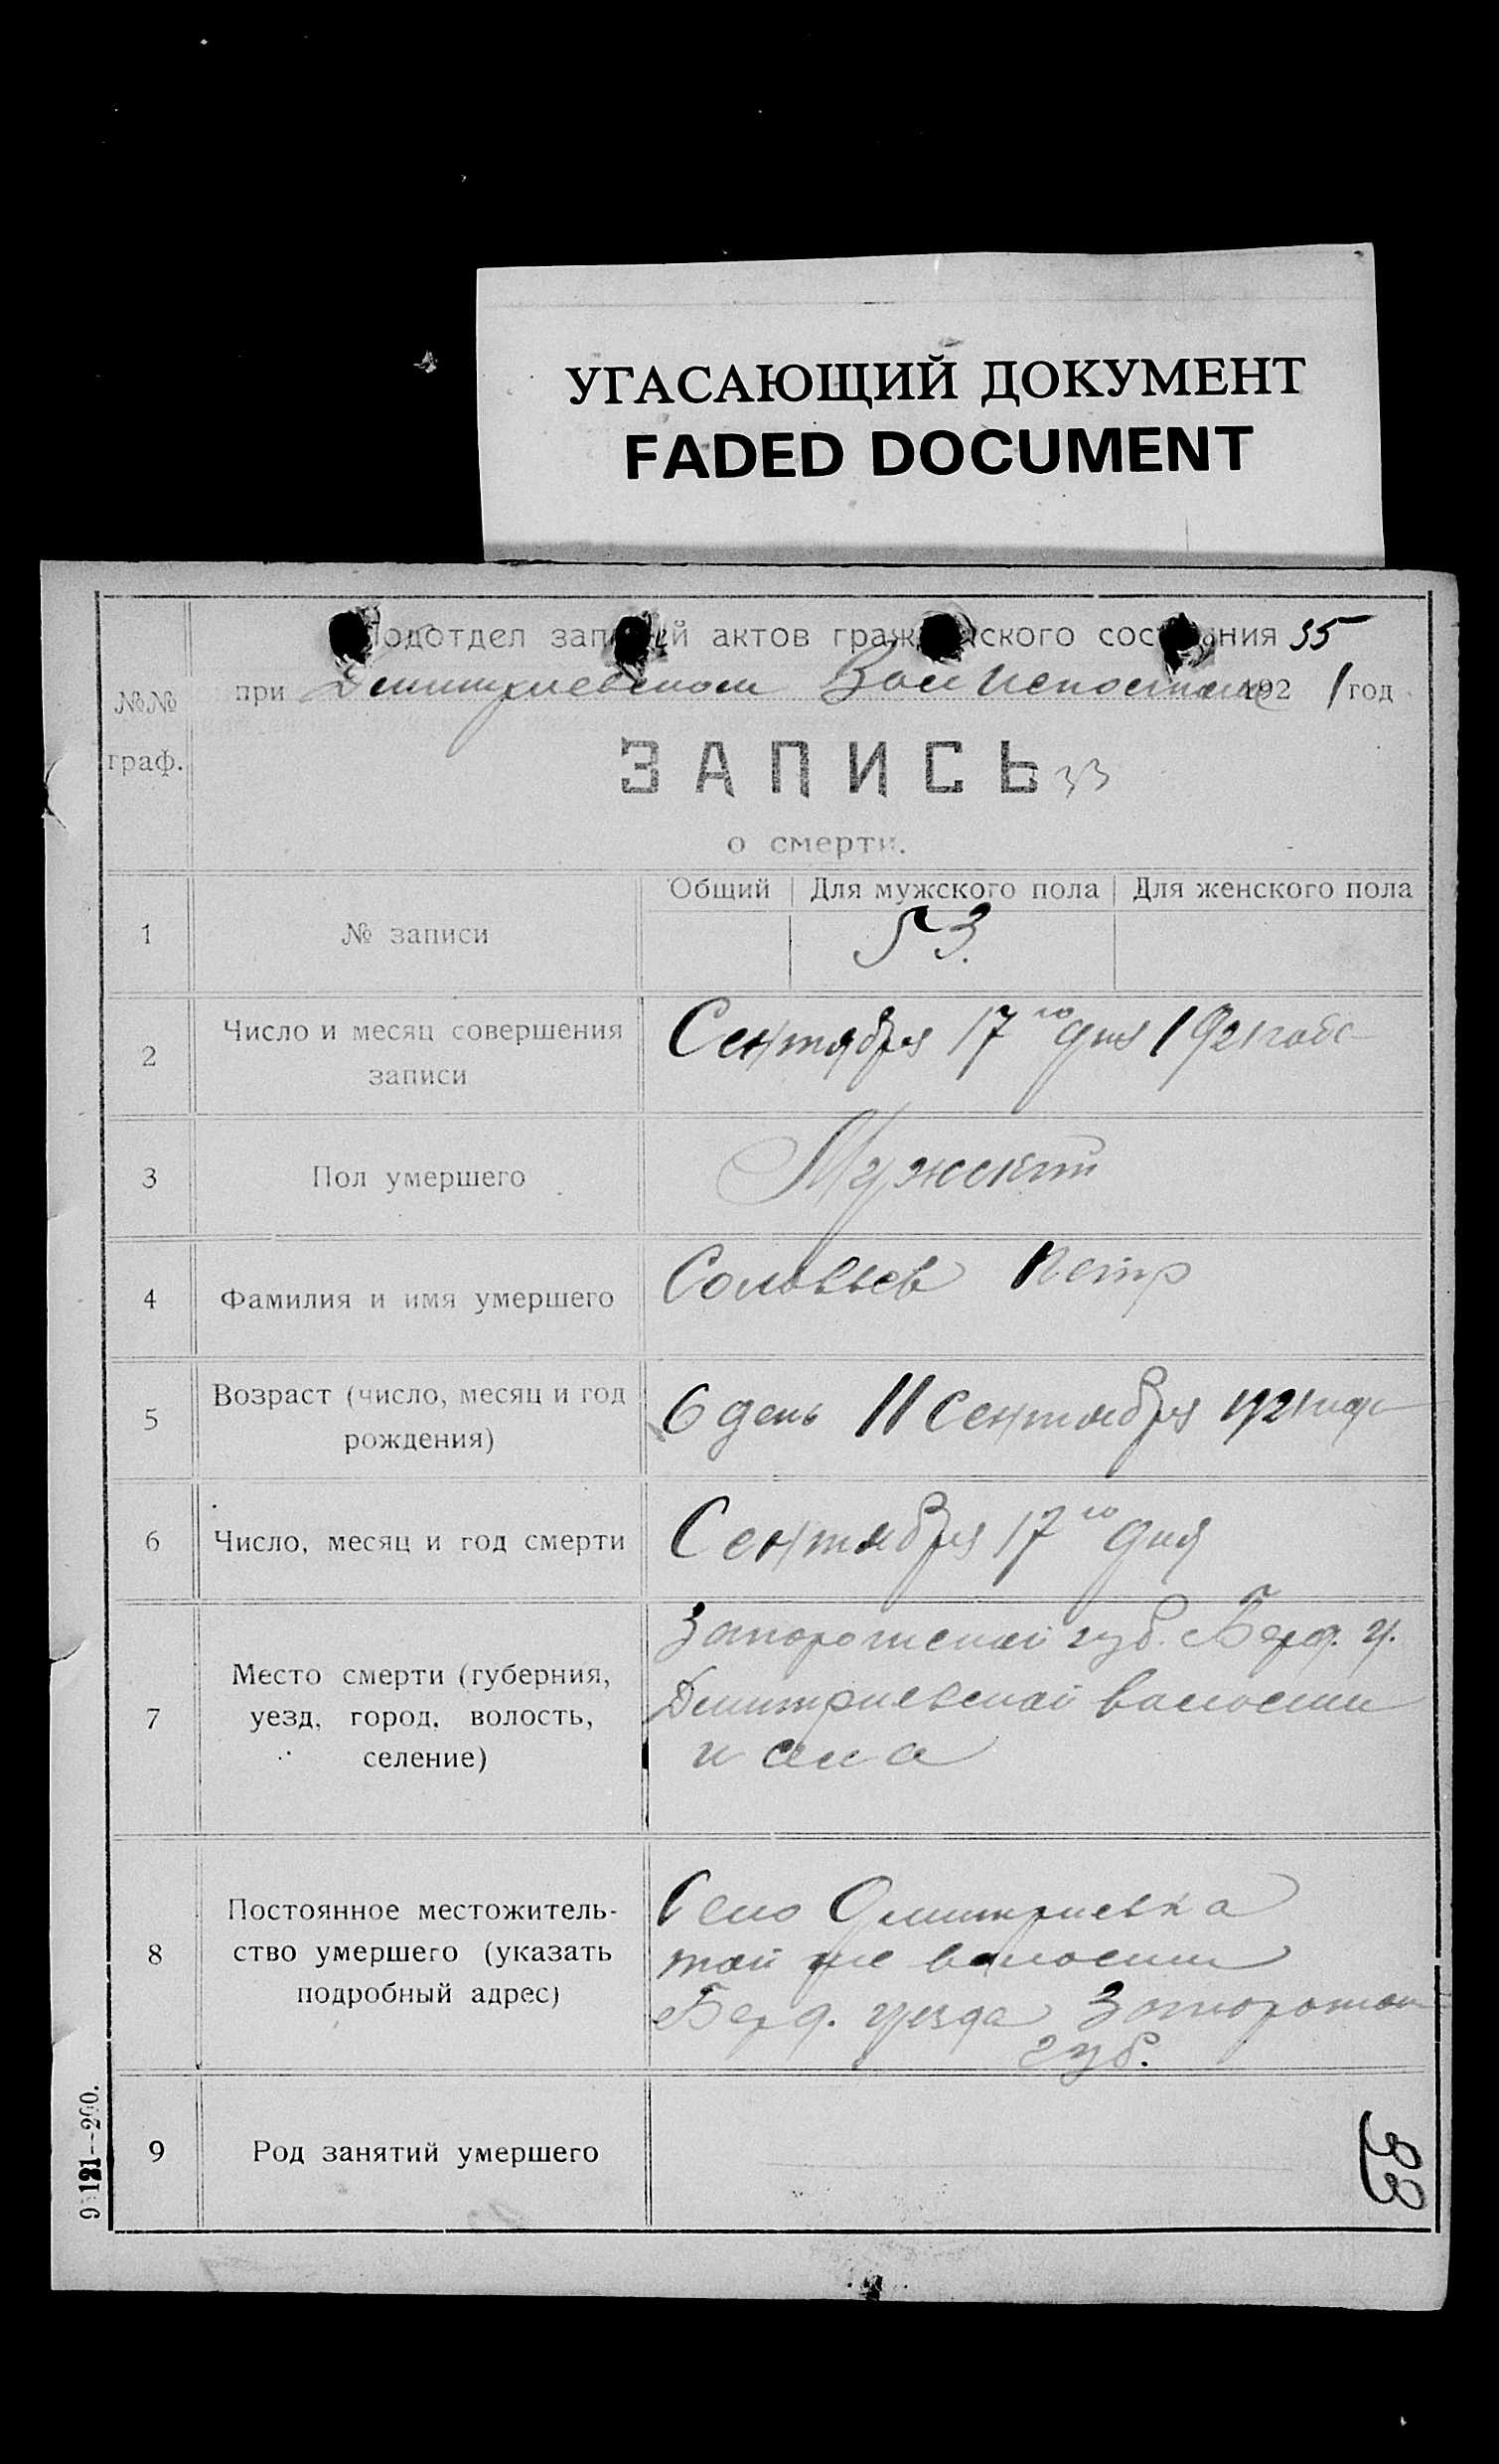 УГАСАЮЩИЙ ДОКУМЕНТ
FADED DOCUMENT
Подотдел записей актов гражданского состояния 35
при Дмитриевском Вол Исполкоме 1921 год
№№ граф.
ЗАПИСЬ 33
о смерти.
Общий Для мужского пола Для женского пола
1 № записи 53.
2 Число и месяц совершения
записи
Сентября 17го дня 1921 года
3 Пол умершего Мужской
4 Фамилия и имя умершего Соловьев Петр
5 Возраст (число, месяц и год
рождения)
6 день 11 Сентября 1921 года
6 Число, месяц и год смерти Сентября 17го дня
7 Место смерти (губерния,
уезд, город, волость,
селение)
Запорожской губ. Берд. у.
Дмитриевской волости
и села
8 Постоянное местожитель-
ство умершего (указать
подробный адрес)
Село Дмитриевка
той же волости
Берд. уезда Запорожской
губ.
9 Род занятий умершего
33